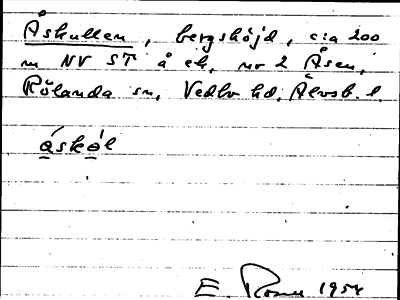 Åskullen, bergshöjd, c:a 200
m NV ST å ek, nr 2 Åsen,
Rölanda sn, Vedbo hd, Älvsb. l.
åskól
E. 1954